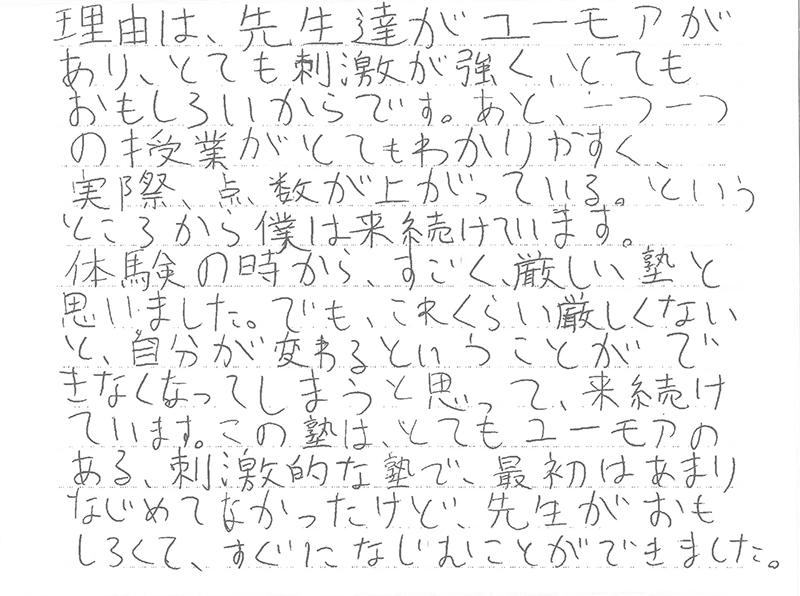 理由は、先生達がユーモアが
あり、とても刺激が強く、とても
おもしろいからです。あと、一つ一つ
の授業がとてもわかりやすく、
実際、点数が上がっている。という
ところから僕は来続けています。
体験の時から、すごく、厳しい塾と
思いました。でも、これくらい厳しくない
と、自分が変わるということがで
きなくなってしまうと思って、来続け
ています。この塾は、とてもユーモアの
ある、刺激的な塾で、最初はあまり
なじめてなかったけど、先生がおも
しろくて、すぐになじむことができました。